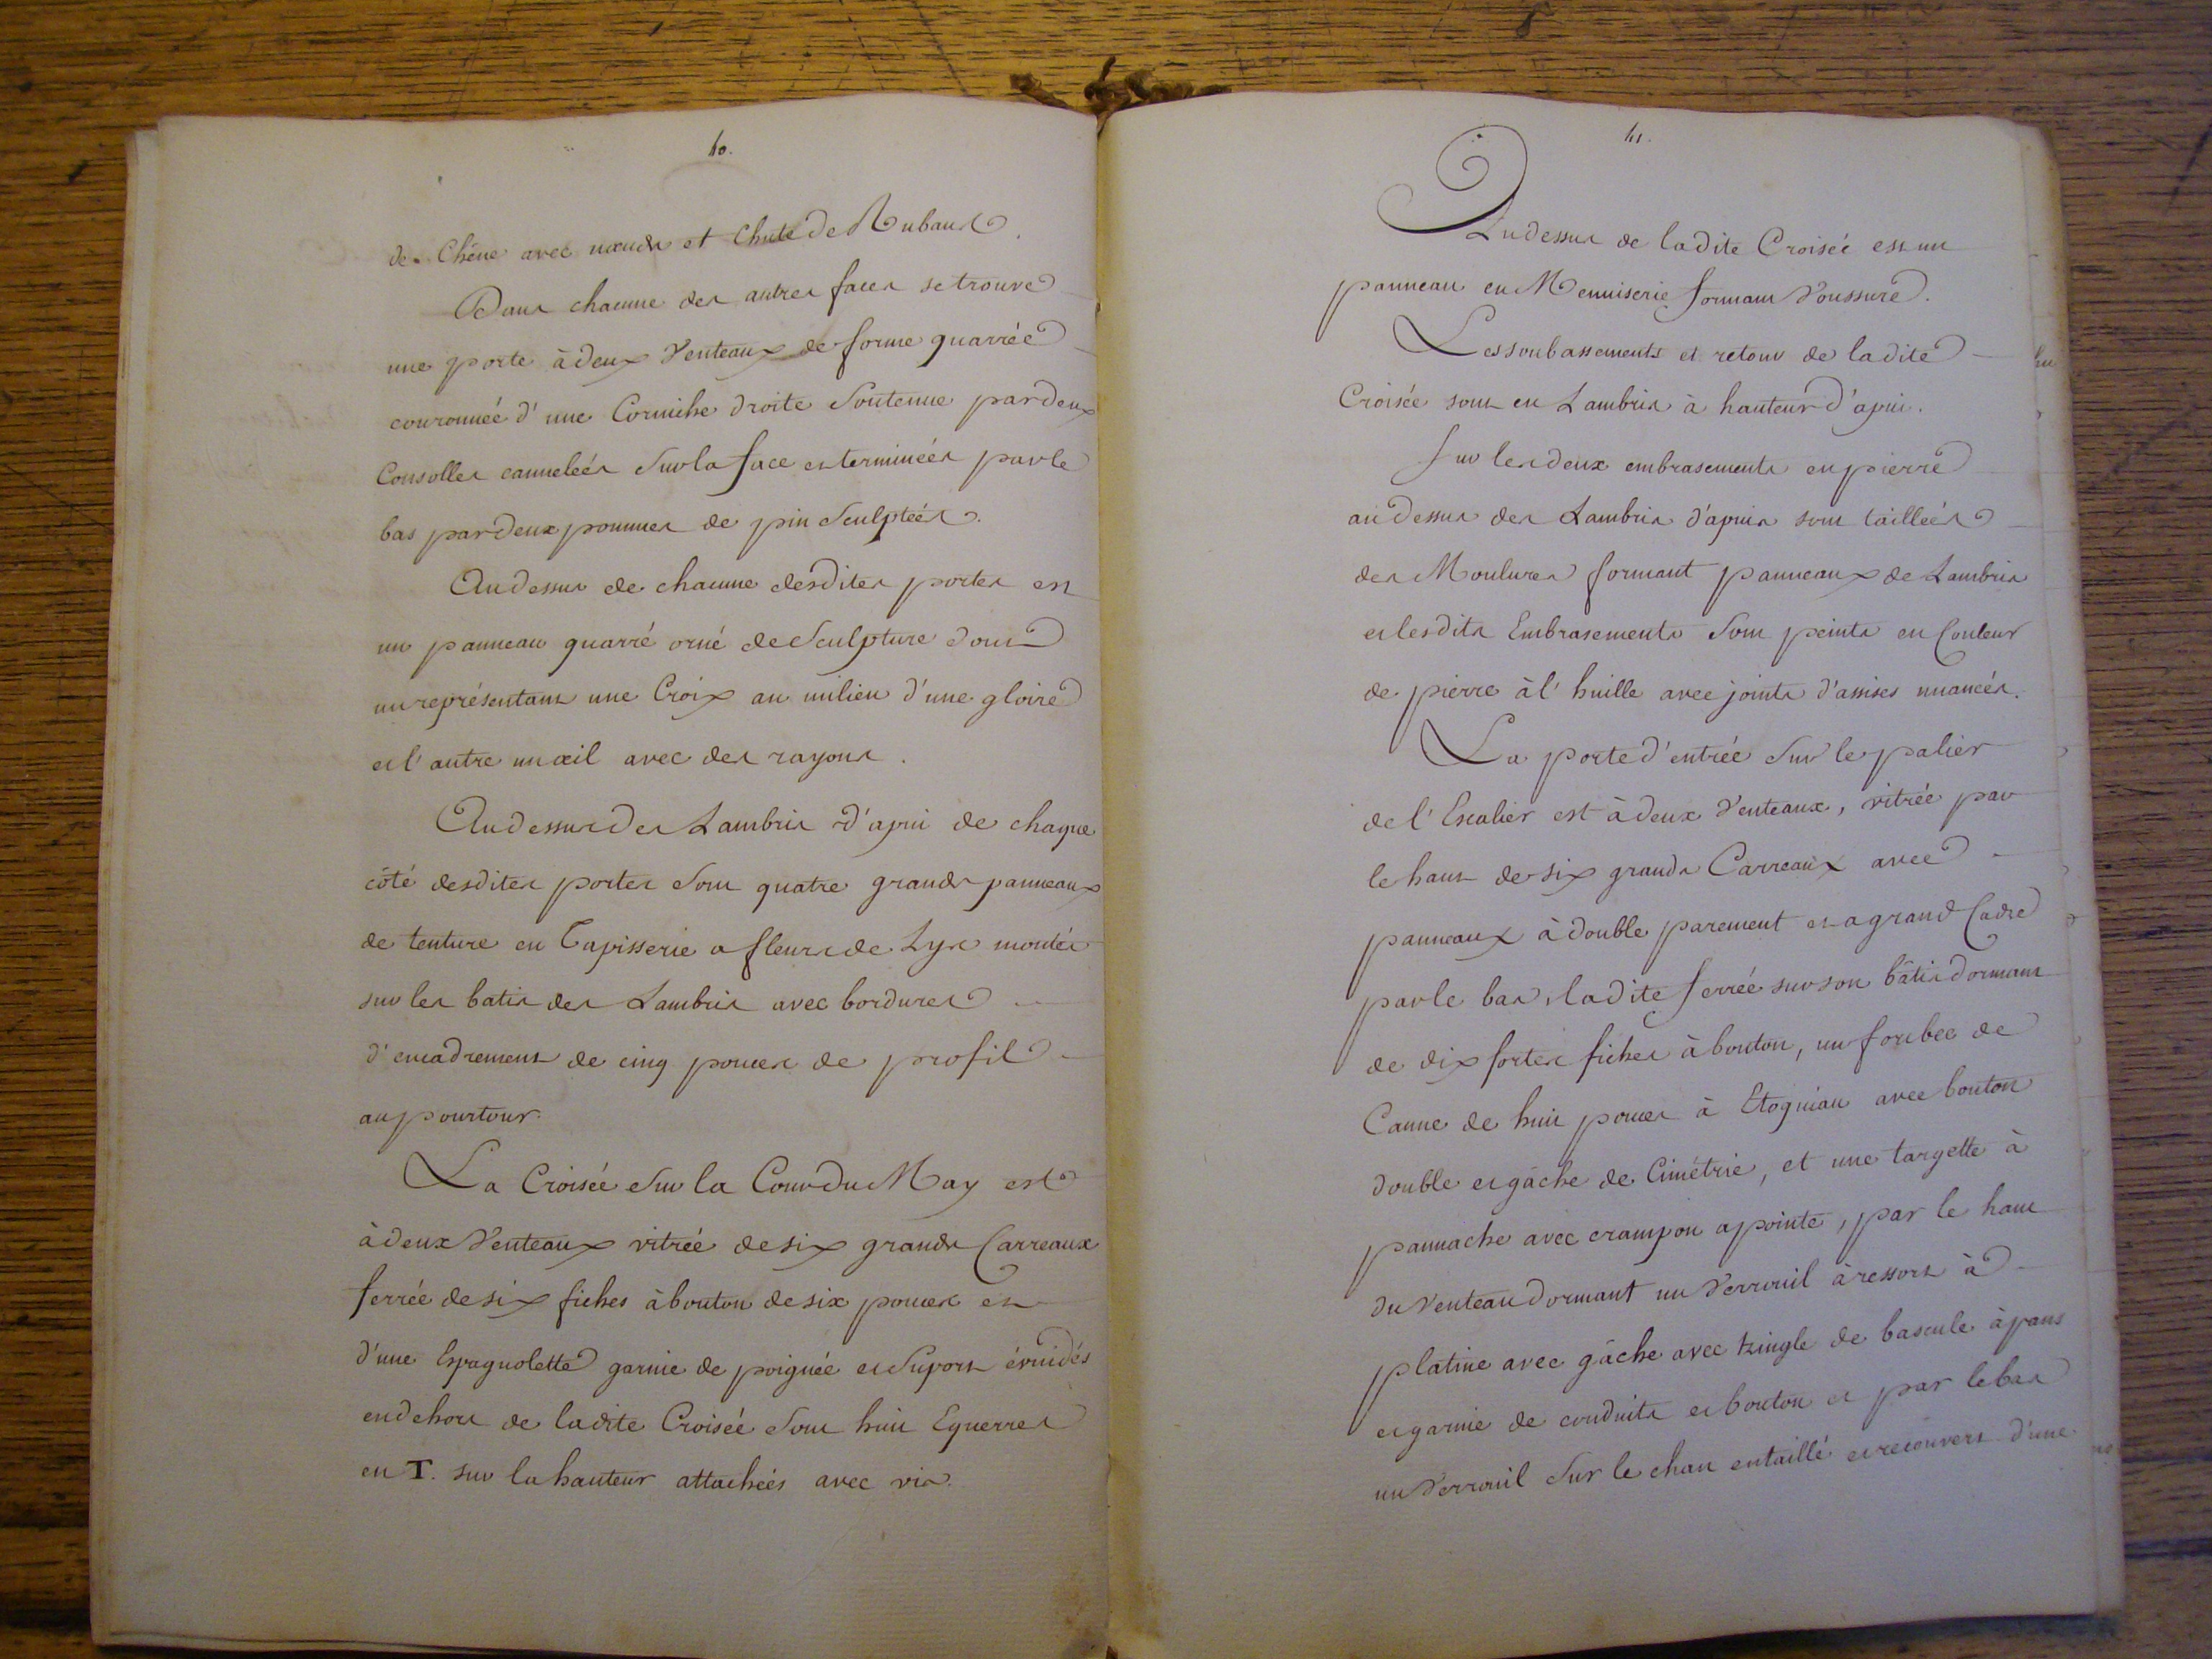 40.
de Chêne avec nœuds et Chute de Rubans.
Dans chacune des autres faces se trouve
une porte à deux Venteaux de forme quarrée
couronnée d'une Corniche droite Soutenue par deux
Consolles canneleés Sur la face et terminées par le
bas par deux pommes de pin Sculpteés.
Audessus de chacune desdites portes est
un panneau quarré orné de Sculpture dont
un représentant une Croix au milieu d'une gloire
et l'autre un œil avec des rayons.
Audessus des Lambris d'apui de chaque
côté desdites portes Sont quatre grands panneaux
de tenture en Tapisserie a fleurs de Lys montés
sur les batis des Lambris avec bordures
d'encadrement de cinq pouces de profil
au pourtour.
La Croisée Sur la Cour du May est
à deux Venteaux vitrée de six grands Carreaux
ferrée de six fiches à bouton de six pouces et
d'une Espagnolette garnie de poignée et Suport évuidés
en dehors de ladite Croisée Sont huit Equerres
en T. sur la hauteur attachées avec vis.
41.
Audessus de ladite Croisée est un
panneau en Menuiserie formant Voussure.
Les soubassements et retour de ladite
Croisée sont en Lambris à hauteur d'apui.
Sur les deux embrasements en pierre
au dessus des Lambris d'apuis sont taillées
des Moulures formant panneaux de Lambris
et lesdits Embrasements Sont peints en Couleur
de pierre à l'huille avec joints d'assises nuancés.
La porte d'entrée Sur le palier
de l'Escalier est à deux Venteaux, vitrée par
le haut de six grands Carreaux avec
panneaux à double parement et a grand Cadre
par le bas, ladite ferrée sur son bâtis dormant
de dix fortes fiches à bouton, un
Canne de huit pouces à avec bouton
double et gâche de Cimétrie, et une targette à
pannache avec crampon a pointe, par le haut
du Venteau dormant un Verrouil à ressort à
platine avec gâche avec tringle de bascule à pans
et garnie de conduits et bouton et par le bas
un Verrouil Sur le chan entaillé et recouvert d'une